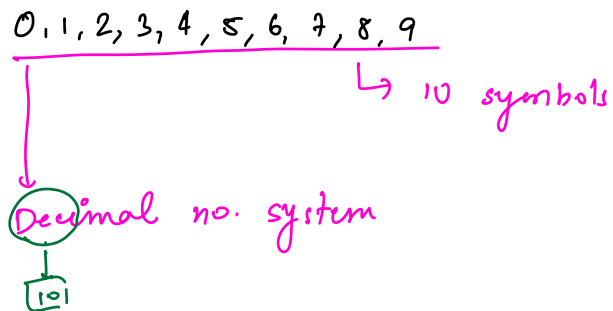 0, 1, 2, 3, 4, 5, 6, 7, 8, 9
10 symbols
Decimal no. system